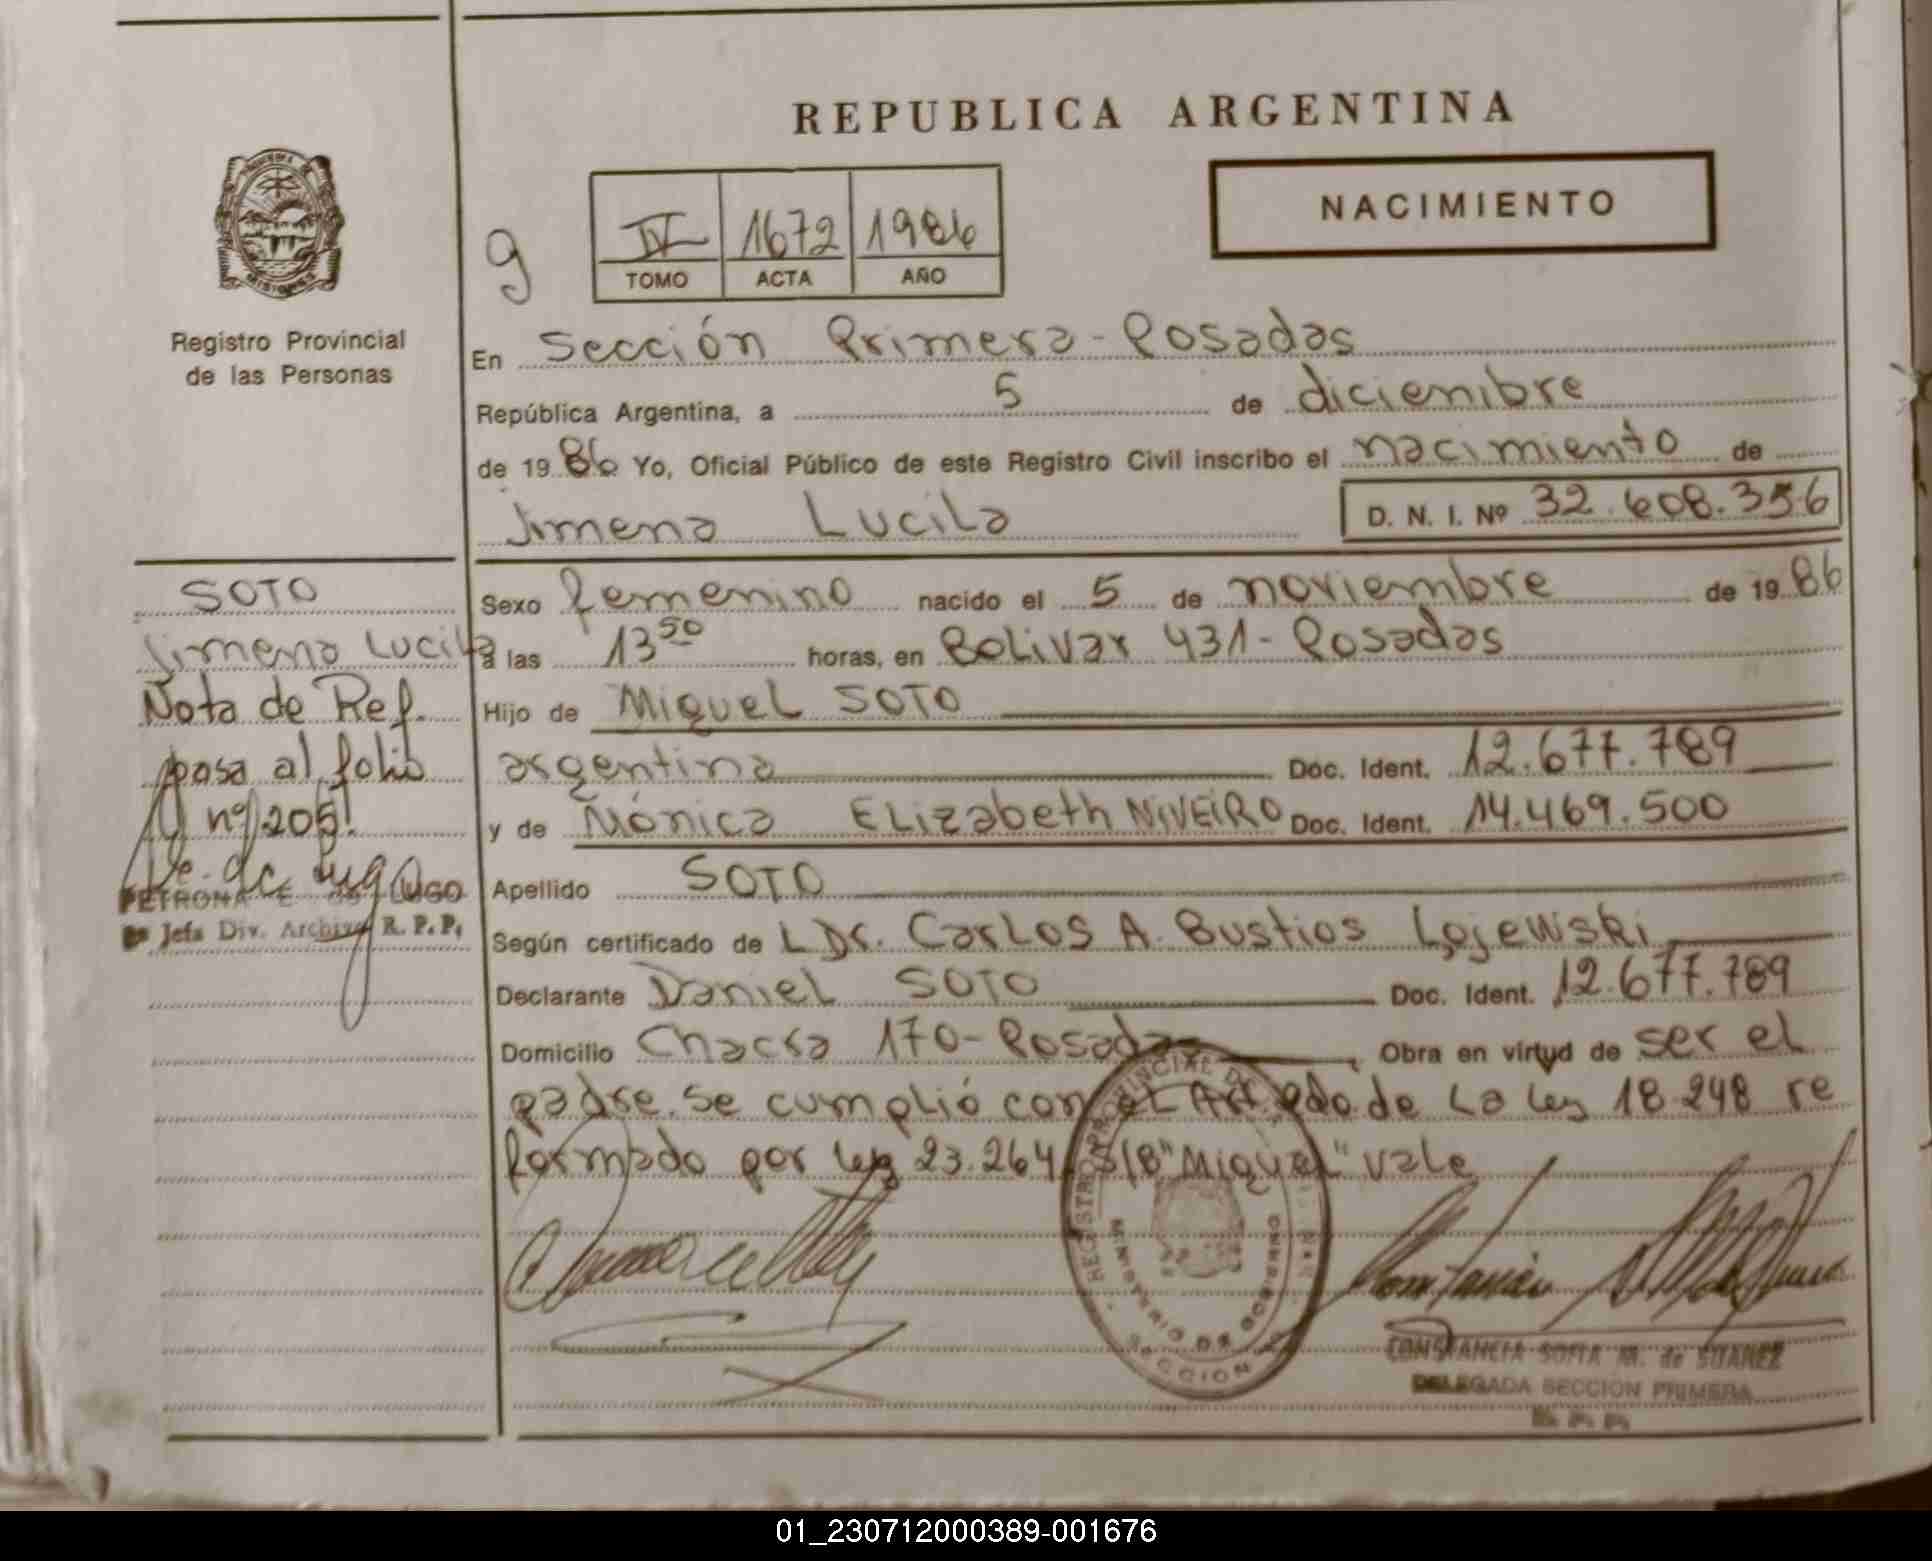 REPUBLICA ARGENTINA
NACIMIENTO
g
IV 1672 1986
TOMO ACTA AÑO
MISIONES
Registro Provincial
de las Personas
En Sección Primera - Posadas
República Argentina, a 5 de diciembre
de 1986 Yo, Oficial Público de este Registro Civil inscribo el nacimiento de
Jimena Lucila D. N. I. Nº 32.608.356
SOTO
Jimena Lucila
Nota de Ref.
pasa al folio
nº 205
PETRONA E. de LUGO
Jefa Div. Archivo R. P. P.
Sexo femenino nacido el 5 de noviembre de 1986
a las 13 50 horas, en Bolivar 431 - Posadas
Hijo de Miguel SOTO
argentina Doc. Ident. 12.677.789
y de Mónica Elizabeth NIVEIRO Doc. Ident. 14.469.500
Apellido SOTO
Según certificado de L Dr. Carlos A. Bustios Lojewski
Declarante Daniel SOTO Doc. Ident. 12.677.789
Domicilio Chacra 170 - Posadas Obra en virtud de ser el
padre. Se cumplió con el Art. 2do. de La Ley 18.248 re
formado por ley 23.264 S/B "Miguel" vale
REGISTRO PROVINCIAL DE
MINISTERIO DE GOBIERNO
SECCION
CONSTANCIA SOFIA M. de SUAREZ
DELEGADA SECCION PRIMERA
01_230712000389-001676